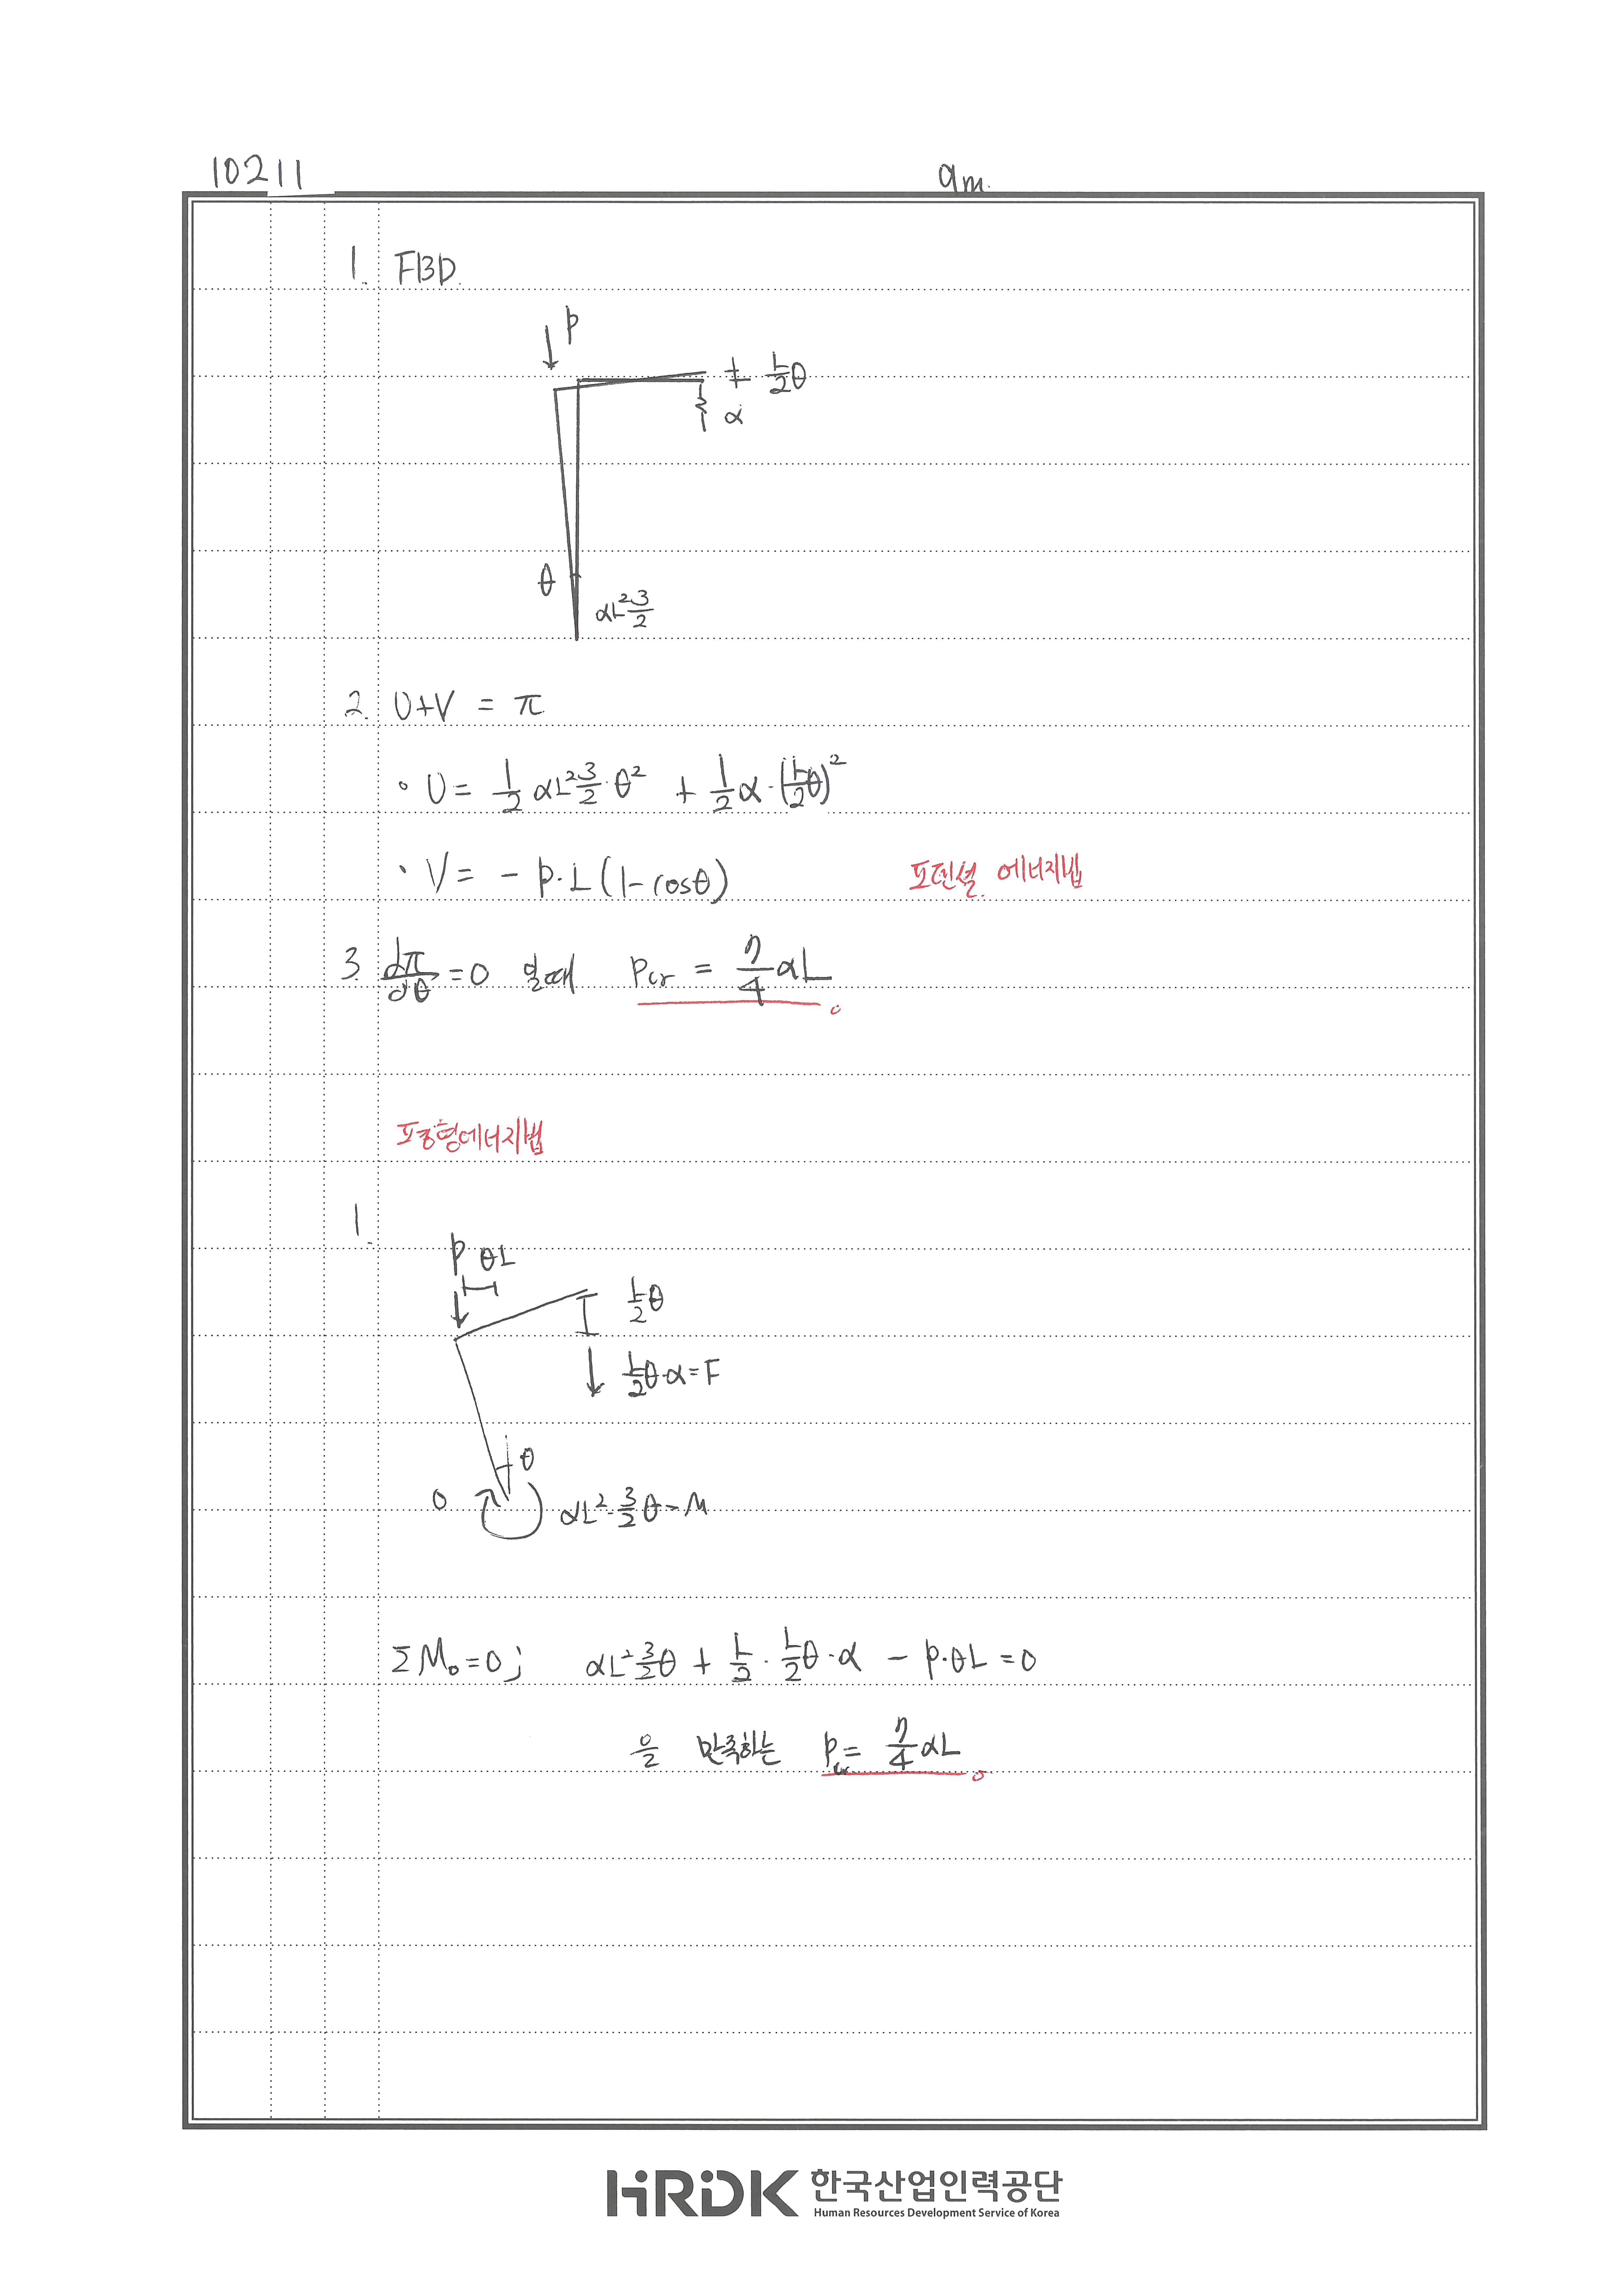 10211
9m.
1. FBD.
P
L/2 θ
α
θ
αL² 3/2
2. U+V = π
• U = 1/2 αL² 3/2 · θ² + 1/2 α · (L/2 θ)²
• V = - P·L (1 - cosθ)
포텐셜 에너지법
3. dπ/dθ = 0 일때 Pcr = 7/4 αL
에너지법
1.
P θL
L/2 θ
L/2 θ·α = F
θ
0
αL² · 3/2 θ = M
ΣM₀ = 0 ; αL² 3/2 θ + L/2 · L/2 θ · α - P·θL = 0
을 만족하는 Pcr = 7/4 αL
HRDK 한국산업인력공단
Human Resources Development Service of Korea